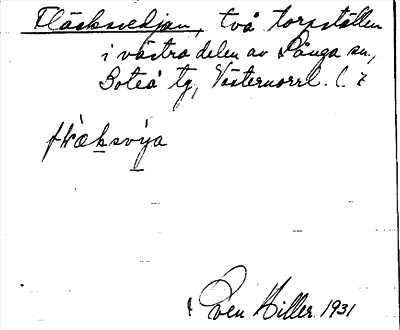 Fläcksvedjan, två torpställen
i västra delen av Långa sn,
Boteå tg, Västernorrl. l.
flæksvija
Sven Hiller. 1931